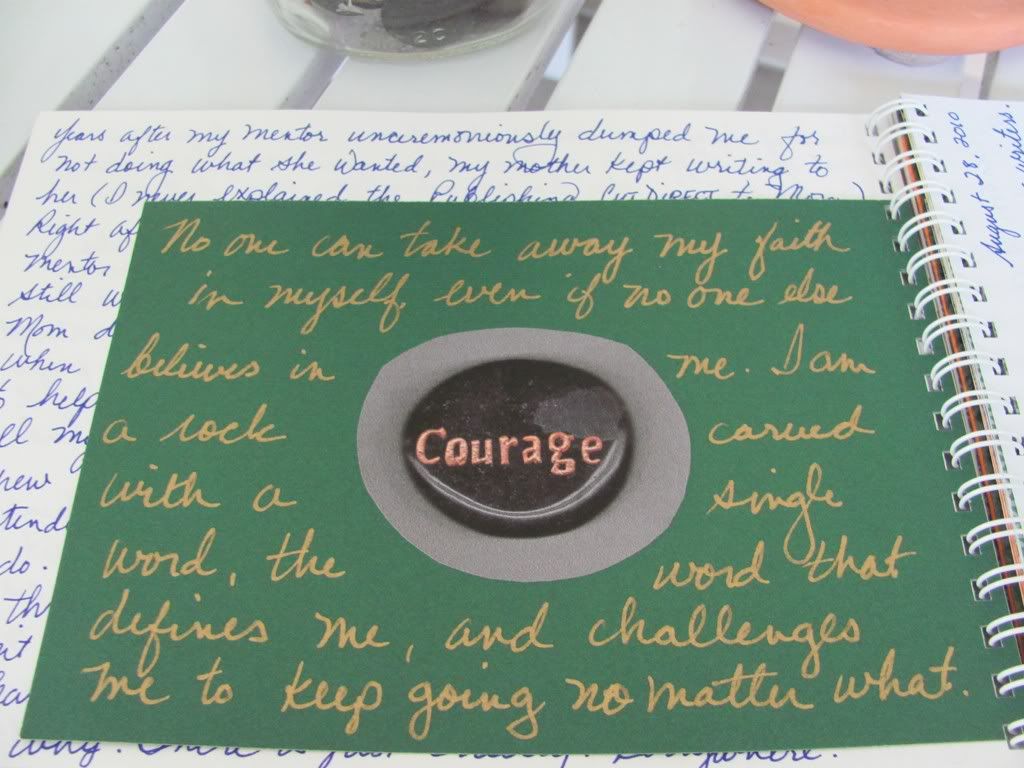 years after my mentor unceremoniously dumped me for
not doing what she wanted, my mother kept writing to
her (I never explained the Publishing to Mom)
Right
mentor
still
Mom
when
help
my
do.
No one can take away my faith
in myself, even if no one else
believes in me. I am
a rock carved
with a single
word, the word that
defines me, and challenges
me to keep going no matter what.
Courage
why.
August 28, 2010
20